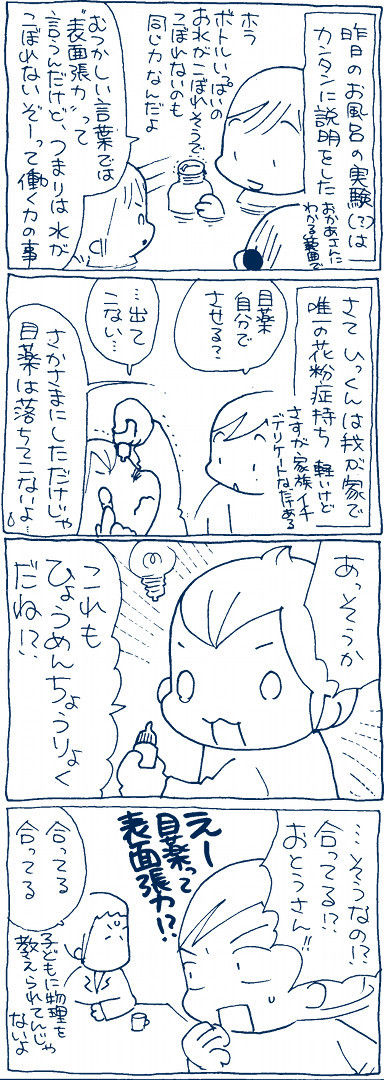 昨日のお風呂の実験(?)は
カンタンに説明をした
おかあさんに
わかる範囲で
ホラ
ボトルいっぱいの
お水がこぼれそうで
こぼれないのも
同じ力なんだよ
むつかしい言葉では
"表面張力"って
言うんだけど、つまりは水が
こぼれないぞーって働く力の事
さて ひっくんは我が家で
唯一の花粉症持ち
軽いけど
さすが家族イチ
デリケートなだけある
目薬
自分で
させる?
…出て
こない…
さかさまにしただけじゃ
目薬は落ちてこないよ…
あっそうか
これも
ひょうめんちょうりょく
だね!?
…そうなの!?
合ってる!?
おとうさん!!
えー
目薬って
表面張力!?
合ってる
合ってる
子どもに物理を
教えられてんじゃ
ないよ